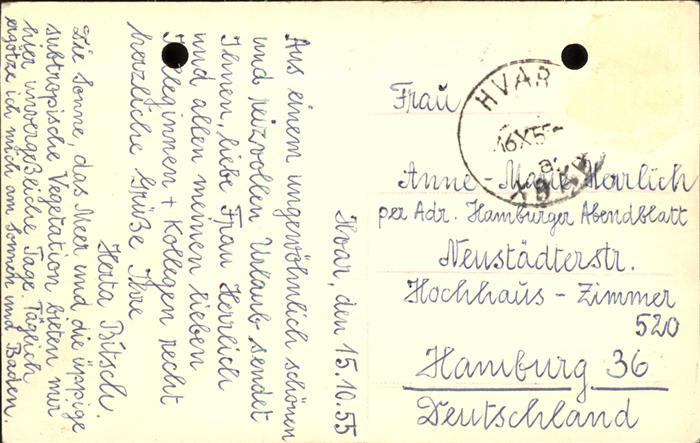 Hvar, den 15.10.55
Aus einem ungewöhnlich schönen
und reizvollen Urlaub sendet
Ihnen, liebe Frau Herrlich
und allen meinen lieben
Kolleginnen + Kollegen recht
herzliche Grüße Ihre
Herta Bitsch.
Die Sonne, das Meer und die üppige
subtropische Vegetation bieten mir
hier unvergeßliche Tage. Täglich
ergötze ich mich am Sonnen und Baden.
HVAR
16X55
Frau
Anne-Marie Herrlich
per Adr. Hamburger Abendblatt
Neustädterstr.
Hochhaus - Zimmer
520
Hamburg 36
Deutschland